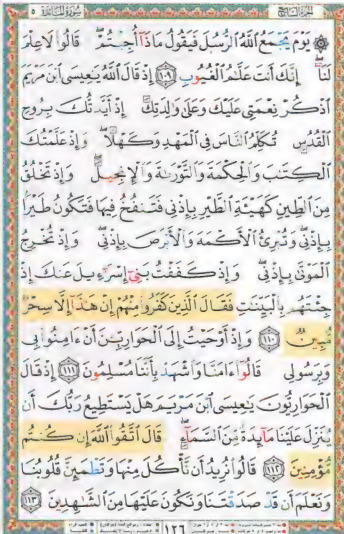 الجزء السابع سورة المائدة ٥
۞ يَوْمَ يَجْمَعُ اللَّهُ الرُّسُلَ فَيَقُولُ مَاذَا أُجِبْتُمْ قَالُوا لَا عِلْمَ
لَنَا إِنَّكَ أَنتَ عَلَّامُ الْغُيُوبِ ١٠٩ إِذْ قَالَ اللَّهُ يَاعِيسَى ابْنَ مَرْيَمَ
اذْكُرْ نِعْمَتِي عَلَيْكَ وَعَلَىٰ وَالِدَتِكَ إِذْ أَيَّدتُّكَ بِرُوحِ
الْقُدُسِ تُكَلِّمُ النَّاسَ فِي الْمَهْدِ وَكَهْلًا وَإِذْ عَلَّمْتُكَ
الْكِتَابَ وَالْحِكْمَةَ وَالتَّوْرَاةَ وَالْإِنجِيلَ وَإِذْ تَخْلُقُ
مِنَ الطِّينِ كَهَيْئَةِ الطَّيْرِ بِإِذْنِي فَتَنفُخُ فِيهَا فَتَكُونُ طَيْرًا
بِإِذْنِي وَتُبْرِئُ الْأَكْمَهَ وَالْأَبْرَصَ بِإِذْنِي وَإِذْ تُخْرِجُ
الْمَوْتَىٰ بِإِذْنِي وَإِذْ كَفَفْتُ بَنِي إِسْرَائِيلَ عَنكَ إِذْ
جِئْتَهُم بِالْبَيِّنَاتِ فَقَالَ الَّذِينَ كَفَرُوا مِنْهُمْ إِنْ هَٰذَا إِلَّا سِحْرٌ
مُّبِينٌ ١١٠ وَإِذْ أَوْحَيْتُ إِلَى الْحَوَارِيِّينَ أَنْ آمِنُوا بِي
وَبِرَسُولِي قَالُوا آمَنَّا وَاشْهَدْ بِأَنَّنَا مُسْلِمُونَ ١١١ إِذْ قَالَ
الْحَوَارِيُّونَ يَاعِيسَى ابْنَ مَرْيَمَ هَلْ يَسْتَطِيعُ رَبُّكَ أَن
يُنَزِّلَ عَلَيْنَا مَائِدَةً مِّنَ السَّمَاءِ قَالَ اتَّقُوا اللَّهَ إِن كُنتُم
مُّؤْمِنِينَ ١١٢ قَالُوا نُرِيدُ أَن نَّأْكُلَ مِنْهَا وَتَطْمَئِنَّ قُلُوبُنَا
وَنَعْلَمَ أَن قَدْ صَدَقْتَنَا وَنَكُونَ عَلَيْهَا مِنَ الشَّاهِدِينَ ١١٣
١٢٦